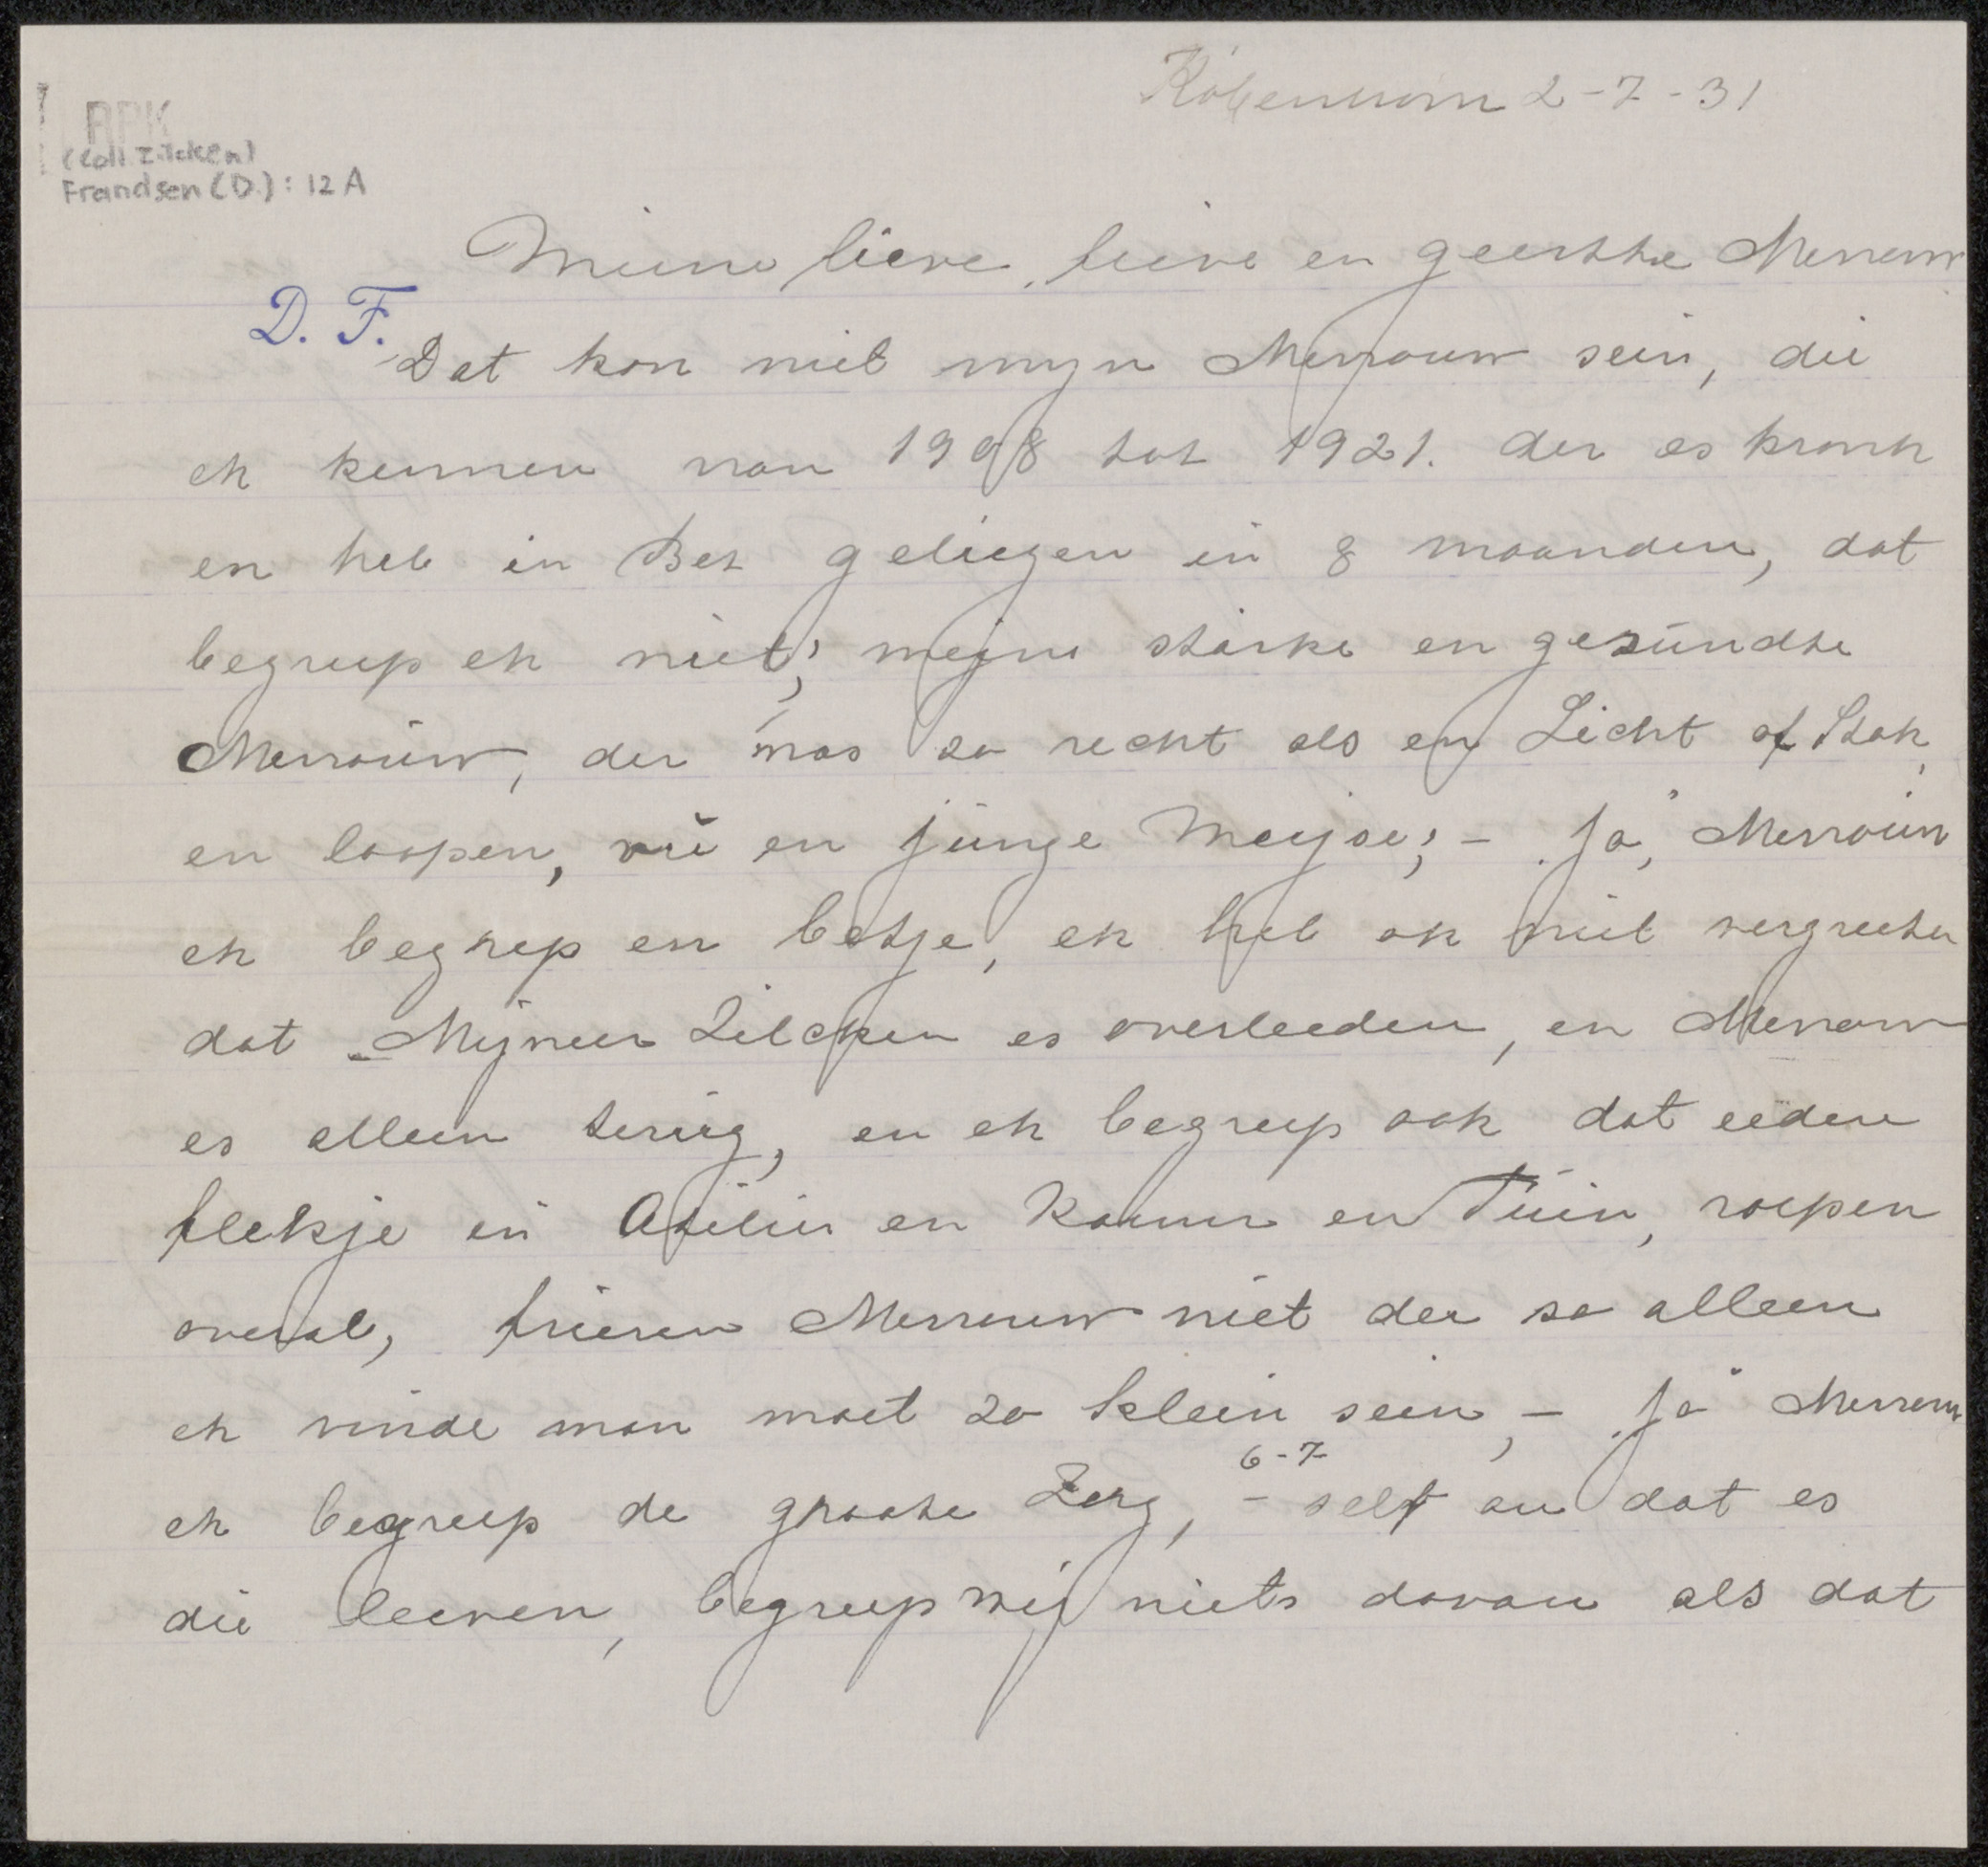 København 2-7-31
RPK
(coll Zilcken)
Frandsen (D.): 12 A
Meine lieve, lieve en geerthe Merrouw
D. F.
Dat kon niet myn Merrouw sein, die
ek kennen van 1908 tot 1921. der es kronk
en heb in Bet geliegen in 8 maanden, dat
begreep ek niet; mejne starke en gesundte
Merrouw, der was so recht als en Licht of Stok,
en loopen, vie en junge Meysje; - Ja, Merrouw
ek begrep en betje, ek heb ok niet vergeeten
dat Mijneer Zilcken es overleeden, en Merrouw
es alleen terug, en ek begreep ook dat eedere
flekje in Atilier en Kamer en Tuin, roepen
overal, Merrouw niet der so alleen
ek vinde man moet so klein sein, - Ja Merrouw
ek begreep de groote Zorg, - self an dat es
6-7
die leeven, begreep wij niets davan als dat